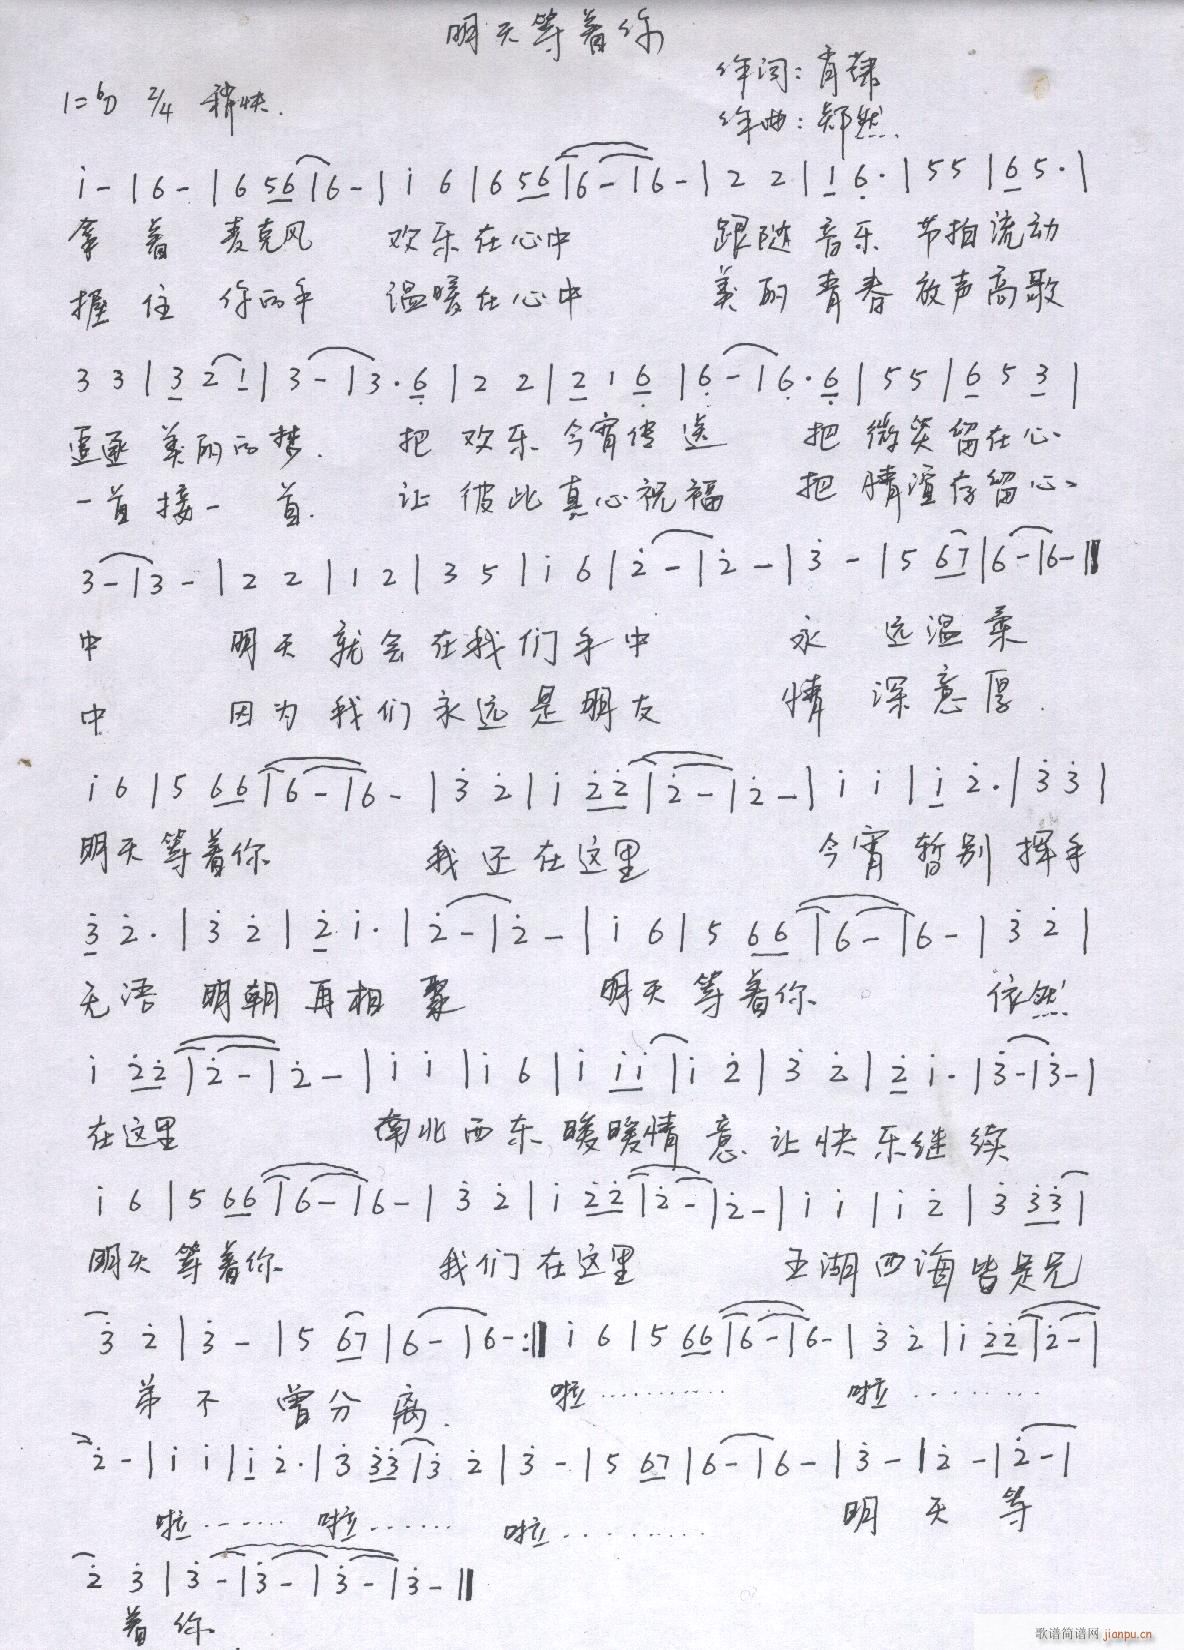 明天等着你
作词：肖
1=bD 2/4 稍快.
作曲：郑然
i - | 6 - | 6 56 | 6 - | i 6 | 6 56 | 6 - | 6 - | 2 2 | 1 6 · | 5 5 | 6 5 · |
拿着 麦克风 欢乐在心中 跟随音乐 节拍流动
握住 你的手 温暖在心中 美丽青春 放声高歌
3 3 | 3 2 1 | 3 - | 3 · 6 | 2 2 | 2 1 6 | 6 - | 6 · 6 | 5 5 | 6 5 3 |
追逐 美丽的梦. 把 欢乐 今宵传送 把 微笑留在心
一首接一首. 让 彼此真心祝福 把 存留心
3 - | 3 - | 2 2 | 1 2 | 3 5 | i 6 | 2 - | 2 - | 3 - | 5 67 | 6 - | 6 - ||
中 明天就会在我们手中 永 远温柔
中 因为我们永远是朋友 情 深意厚.
i 6 | 5 66 | 6 - | 6 - | 3 2 | i 22 | 2 - | 2 - | i i | i 2 · | 3 3 |
明天等着你 我还在这里 今宵暂别 挥手
3 2 · | 3 2 | 2 i · | 2 - | 2 - | i 6 | 5 66 | 6 - | 6 - | 3 2 |
无语 明朝再相聚 明天等着你 依然
i 22 | 2 - | 2 - | i i | i 6 | i ii | i 2 | 3 2 | 2 i · | 3 - | 3 - |
在这里 南北西东 暖暖情意 让快乐继续
i 6 | 5 66 | 6 - | 6 - | 3 2 | i 22 | 2 - | 2 - | i i | i 2 | 3 33 |
明天等着你 我们在这里 五湖四海皆是兄
3 2 | 3 - | 5 67 | 6 - | 6 - :|| i 6 | 5 66 | 6 - | 6 - | 3 2 | i 22 | 2 - |
弟不曾分离. 啦………… 啦…………
2 - | i i | i 2 · | 3 33 | 3 2 | 3 - | 5 67 | 6 - | 6 - | 3 - | 2 - | 2 - |
啦…… 啦…… 啦………… 明天等
2 3 | 3 - | 3 - | 3 - | 3 - ||
着你.
歌谱简谱网 jianpu.cn